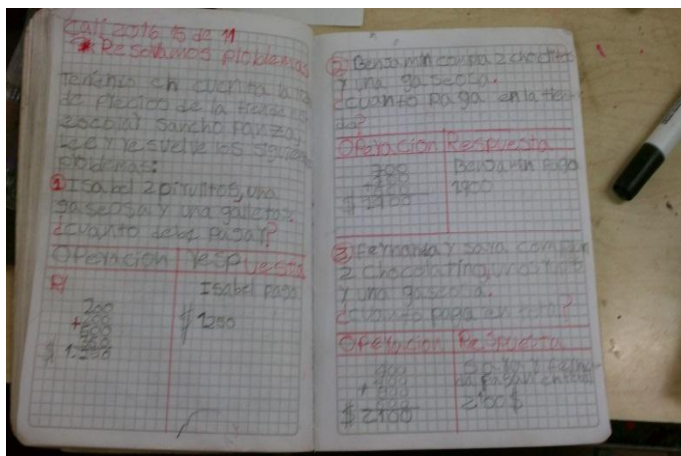 Cali 2016 15 de 11
Resolvamos problemas
Teniendo en cuenta la
de precios de la tienda
escolar sancho panza,
Lee y resuelve los siguien
problemas:
① Isabel 2 pirulitos, una
gaseosa y una galletas.
¿cuanto debe pagar?
Operación respuesta
R/ Isabel paga
200
+
500
300
$ 1.200 $ 1200
② Benjamin compa 2 choclitos
y una gaseosa.
¿cuanto paga en la tien
da?
Operación Respuesta
700 Benjamin paga
700 1900
$ 1900
③ Fernanda y sara compran
2 chocolatina,
y una gaseosa.
¿cuanto papa en total?
Operación Respuesta
Sara y Ferna
da pagan en total
+ 2100 $
$ 2100